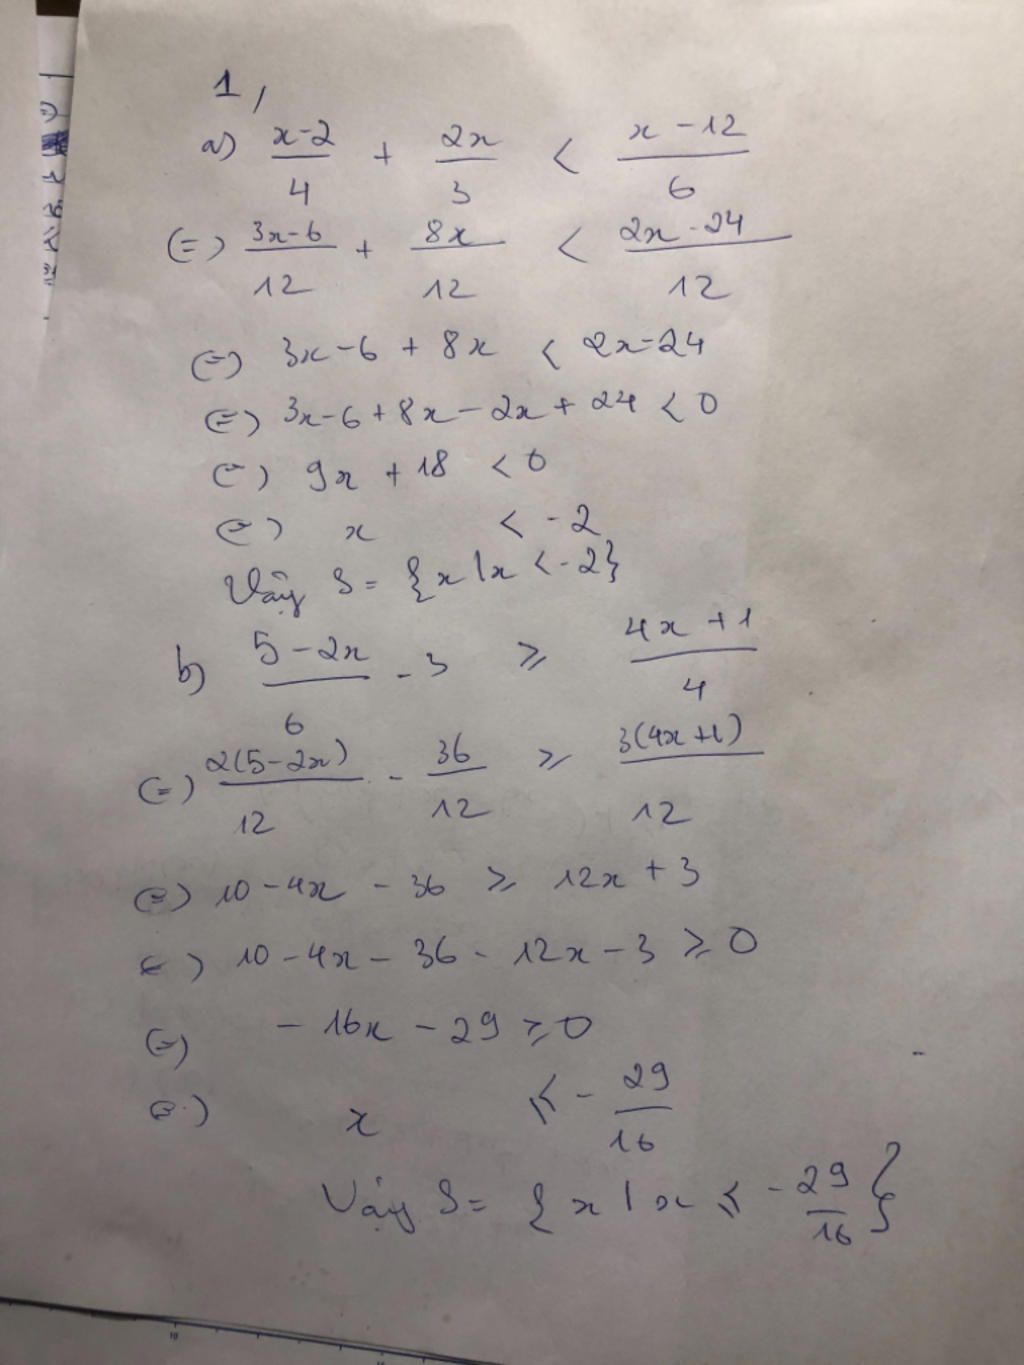 1,
a) x-2/4 + 2x/3 < x-12/6
(=) 3x-6/12 + 8x/12 < 2x-24/12
(=) 3x-6 + 8x < 2x-24
(=) 3x-6+8x-2x+24 < 0
(=) 9x + 18 < 0
(=) x < -2
Vậy S = {x | x < -2}
b) 5-2x/6 - 3 ≥ 4x+1/4
(=) 2(5-2x)/12 - 36/12 ≥ 3(4x+1)/12
(=) 10-4x - 36 ≥ 12x + 3
(=) 10-4x-36-12x-3 ≥ 0
(=) -16x - 29 ≥ 0
(=) x ≤ -29/16
Vậy S = {x | x ≤ -29/16}
10